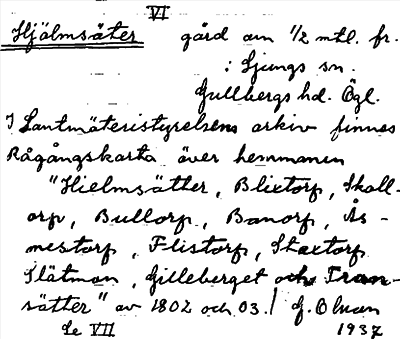 VI
Hjälmsäter gård om 1/2 mtl. fr.
i Ljungs sn.
Gullbergs hd. Ögl.
I Lantmäteristyrelsens arkiv finnes
Rågångskarta över hemmanen
"Hielmsätter, Blixtorp, Skall-
orp, Bullorp, Banorp, Ås-
nestorp, Flistorp, Staxtorp
Slätmon, Gilleberget och Tran-
sätter" av 1802 och 03. / G. Olsson
Se VII 1937